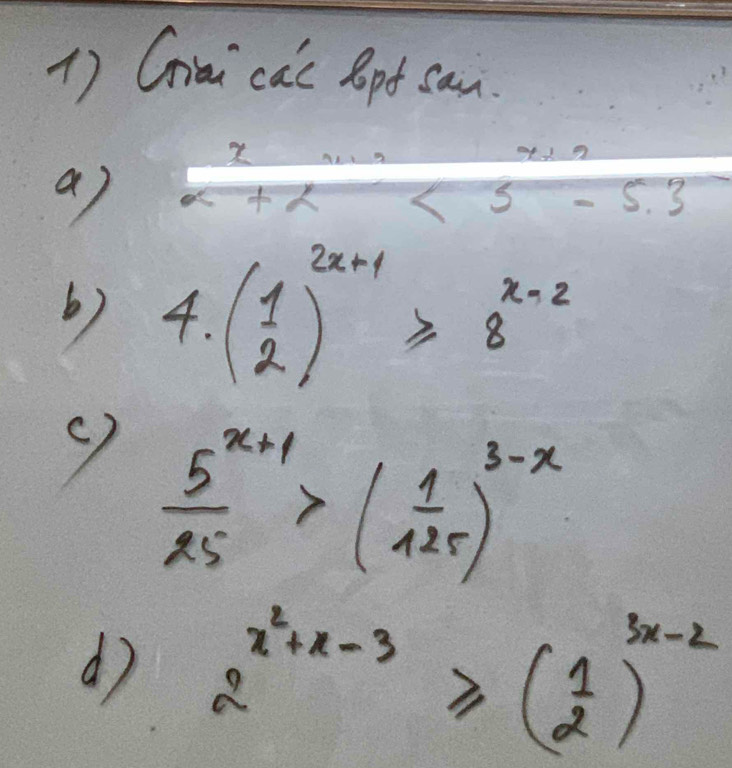 1) Giải các bpt sau.
a) 2^x + 2 < 3 - 5.3
b) 4.(1/2)^(2x+1) ≥ 8^(x-2)
c) 5^(x+1)/25 > (1/125)^(3-x)
d) 2^(x²+x-3) ≥ (1/2)^(3x-2)